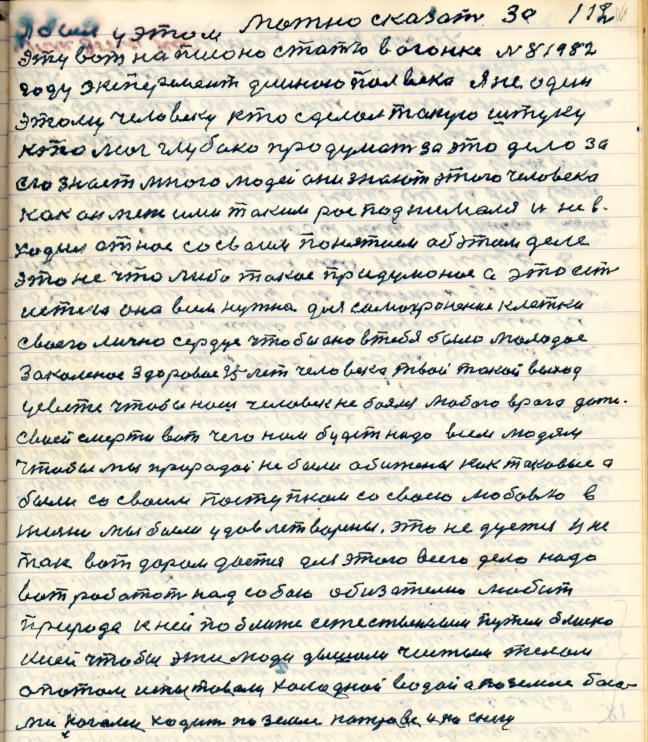 и этом можно сказат за 112
эту вот написано статю в огонке N 8 1982
году эксперемент длиною пол века Я не один
этому человеку кто сделал такую штуку
кто мог глубоко продумат за это дело за
его знает много людей они знают этого человека
как он меж ими таким рос поднимался и не в.
ходил от нас со своим понятием об этом деле
это не что либо такое придуманое а это ест
истена она всем нужна для самохронение клетки
своего лично сердце чтобы оно в тебя было молодое
Закаленое здоровое 25 лет человека твой такой выход
цевете чтобы наш человек не боялся любого врага даже.
своей смерти вот чего нам будет надо всем людям
чтобы мы природой не были обижены как таковые а
были со своим поступком со своею любовью в
жизни мы были удовлетварены. это не дуется и не
так вот даром дается для этого всего дело надо
вот работат над собою обизателно любит
природа к ней поближе естественным путем близко
к ней чтобы эти люди дышали чистым телом
а потом испытовали холодной водой а по земле босы-
ми ногами ходит по земле по траве и по снегу